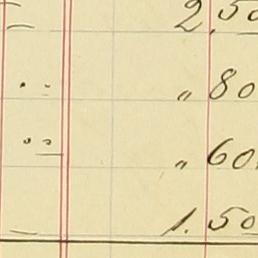 2.50
" 80
" 60
1.50